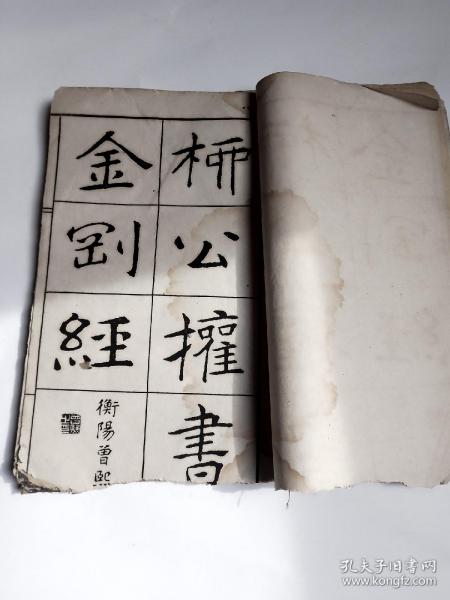 柳公權書
金剛經
衡陽曾熙
孔夫子旧书网
www.kongfz.com